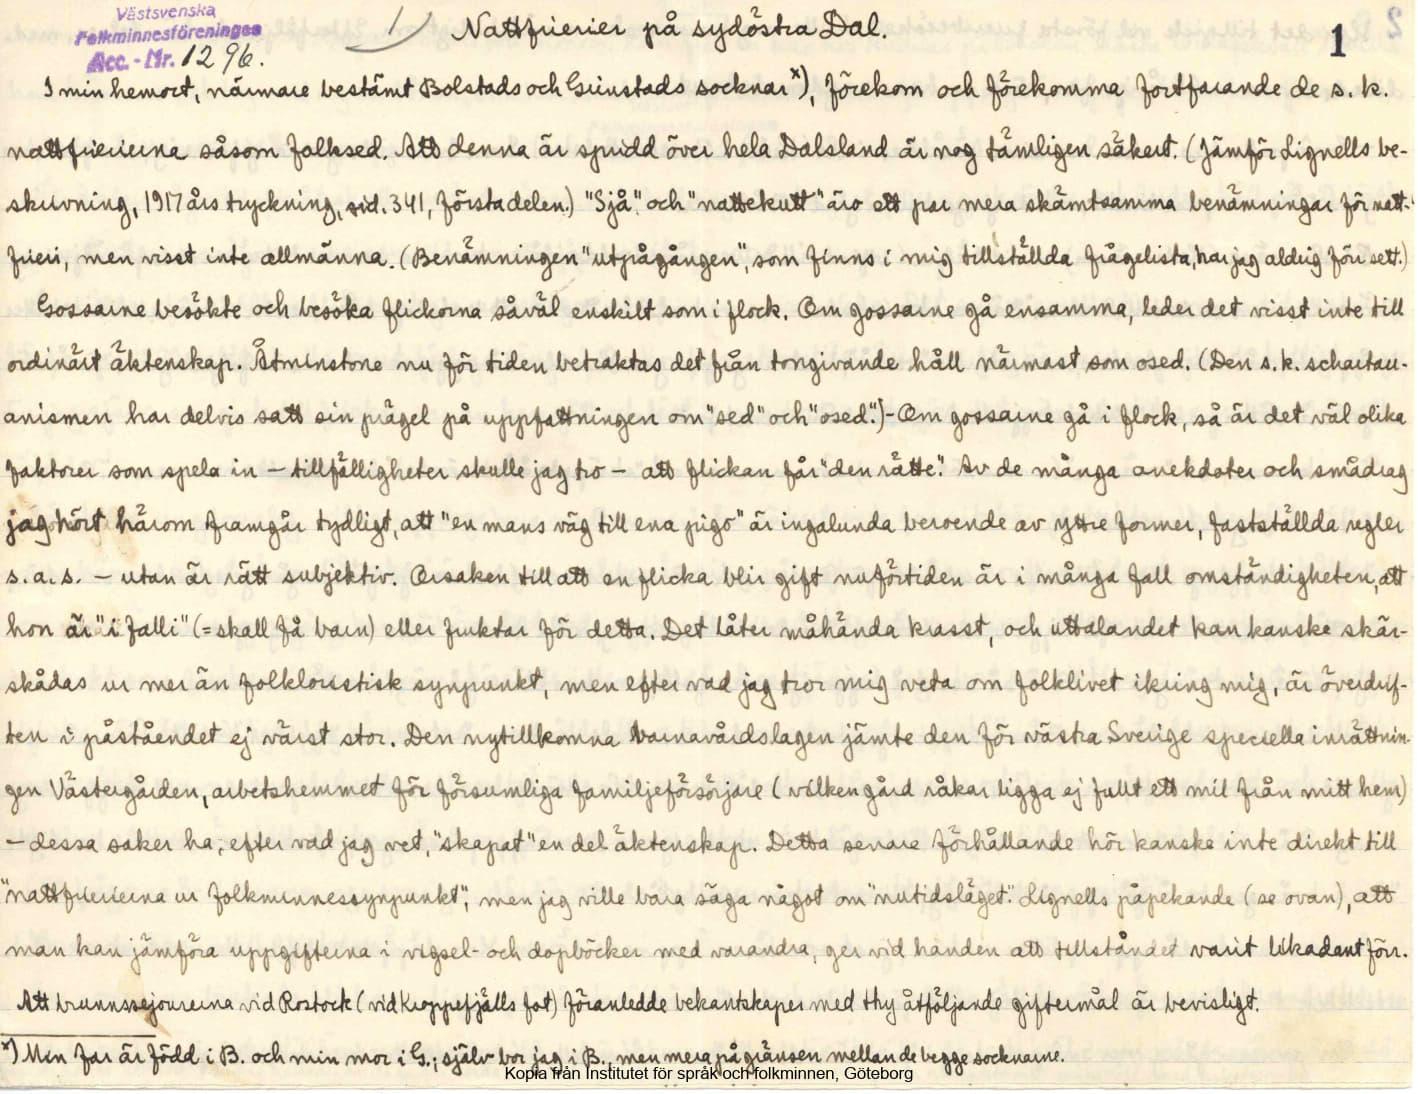 Västsvenska
Folkminnesföreningen
Acc.-Nr. 1296.
1) Nattfrierier på sydöstra Dal.
1
I min hemort, närmare bestämt Bolstads och Grinstads socknar x), förekom och förekomma fortfarande de s. k.
nattfrierierna såsom folksed. Att denna är spridd över hela Dalsland är nog tämligen säkert. (Jämför Lignells be-
skrivning, 1917 års tryckning, sid. 341, första delen.) "Sjå" och "nattekutt" äro ett par mera skämtsamma benämningar för natt-
frieri, men visst inte allmänna. (Benämningen "utpågången", som finns i mig tillställda frågelista, har jag aldrig förr sett.)
Gossarne besökte och besöka flickorna såväl enskilt som i flock. Om gossarne gå ensamma, leder det visst inte till
ordinärt äktenskap. Åtminstone nu för tiden betraktas det från tongivande håll närmast som osed. (Den s. k. schartau-
anismen har delvis satt sin prägel på uppfattningen om "sed" och "osed".) - Om gossarne gå i flock, så är det väl olika
faktorer som spela in – tillfälligheter skulle jag tro – att flickan får "den rätte". Av de många anekdoter och smådrag
jag hört härom framgår tydligt, att "en mans väg till ena pigo" är ingalunda beroende av yttre former, fastställda regler
s. a. s. – utan är rätt subjektiv. Orsaken till att en flicka blir gift nuförtiden är i många fall omständigheten, att
hon är "i falli" (= skall få barn) eller fruktar för detta. Det låter måhända krasst, och uttalandet kan kanske skär-
skådas ur mer än folkloristisk synpunkt, men efter vad jag tror mig veta om folklivet ikring mig, är överdrif-
ten i påståendet ej värst stor. Den nytillkomna barnavårdslagen jämte den för västra Sverige speciella inrättnin-
gen Västergården, arbetshemmet för försumliga familjeförsörjare (vilken gård råkar ligga ej fullt ett mil från mitt hem)
– dessa saker ha, efter vad jag vet, "skapat" en del äktenskap. Detta senare förhållande hör kanske inte direkt till
"nattfrierierna ur folkminnessynpunkt", men jag ville bara säga något om "nutidsläget". Lignells påpekande (se ovan), att
man kan jämföra uppgifterna i vigsel- och dopböcker med varandra, ger vid handen att tillståndet varit likadant förr.
Att brunnssejourerna vid Rostock (vid Kroppefjälls fot) föranledde bekantskaper med thy åtföljande giftermål är bevisligt.
x) Min far är född i B. och min mor i G.; själv bor jag i B., men mera på gränsen mellan de begge socknarne.
Kopia från Institutet för språk och folkminnen, Göteborg